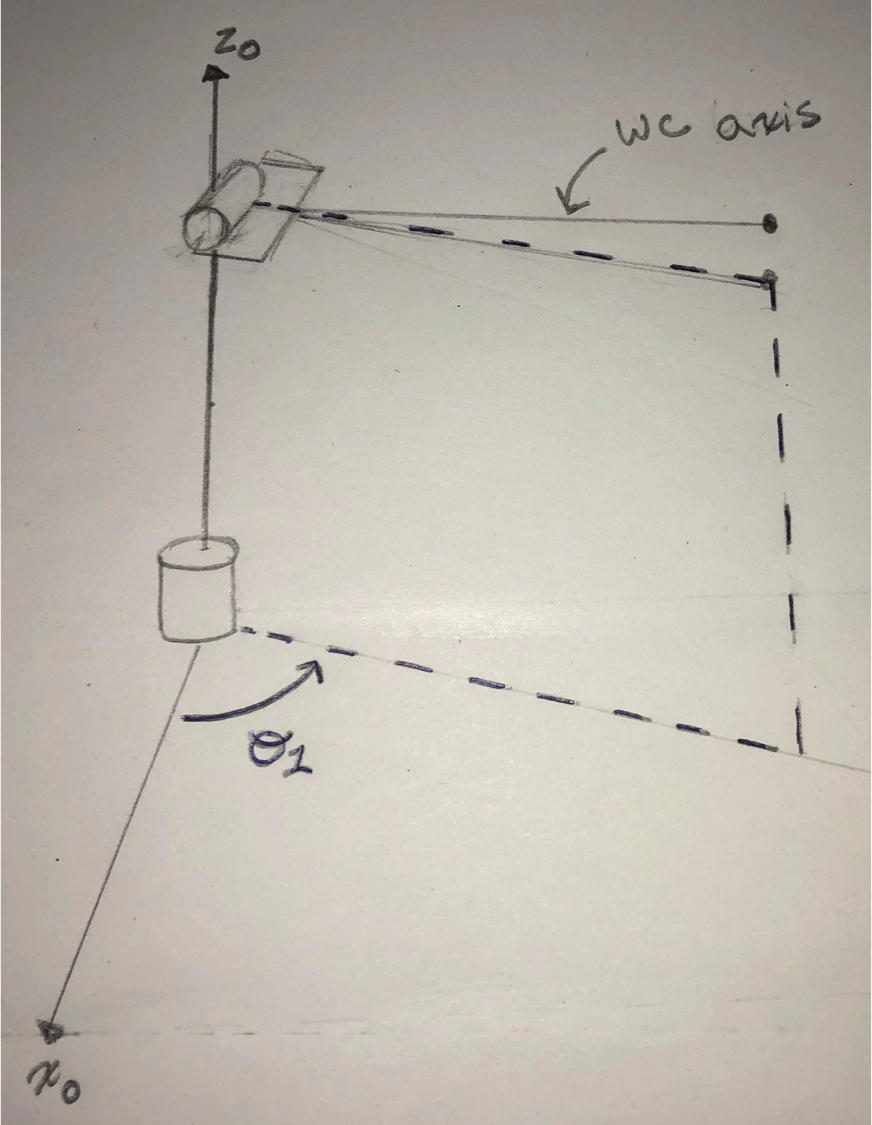 z₀
wc axis
θ₁
x₀